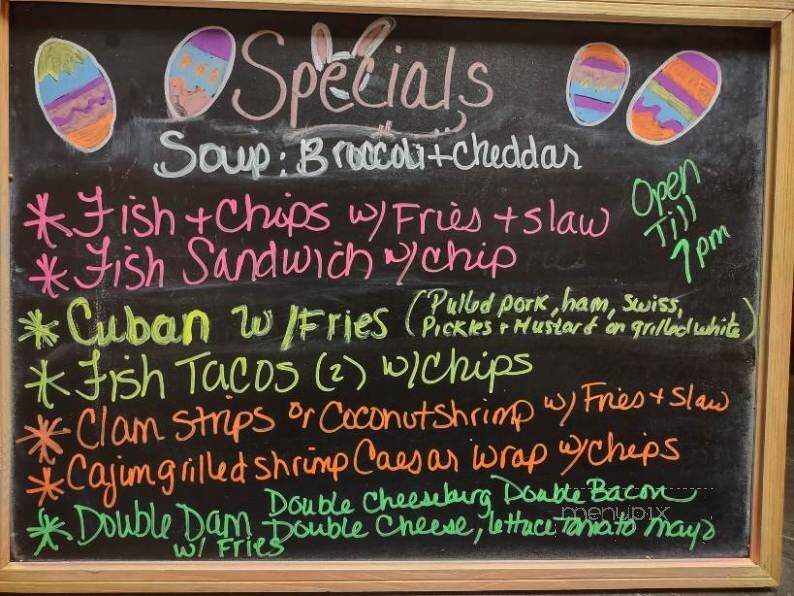 Specials
Soup: Broccoli + cheddar
Open
Till
7pm
* Fish + Chips w/ Fries + slaw
* Fish Sandwich w/ chip
* Cuban w/ Fries (Pulled pork, ham, swiss,
Pickles + Mustard on grilled white)
* Fish Tacos (2) w/ chips
* Clam strips or Coconut shrimp w/ Fries + slaw
* Cajun grilled shrimp Caesar wrap w/ chips
* Double Dam Double Cheeseburg Double Bacon
Double Cheese, lettuce tomato mayo
w/ Fries
menupix